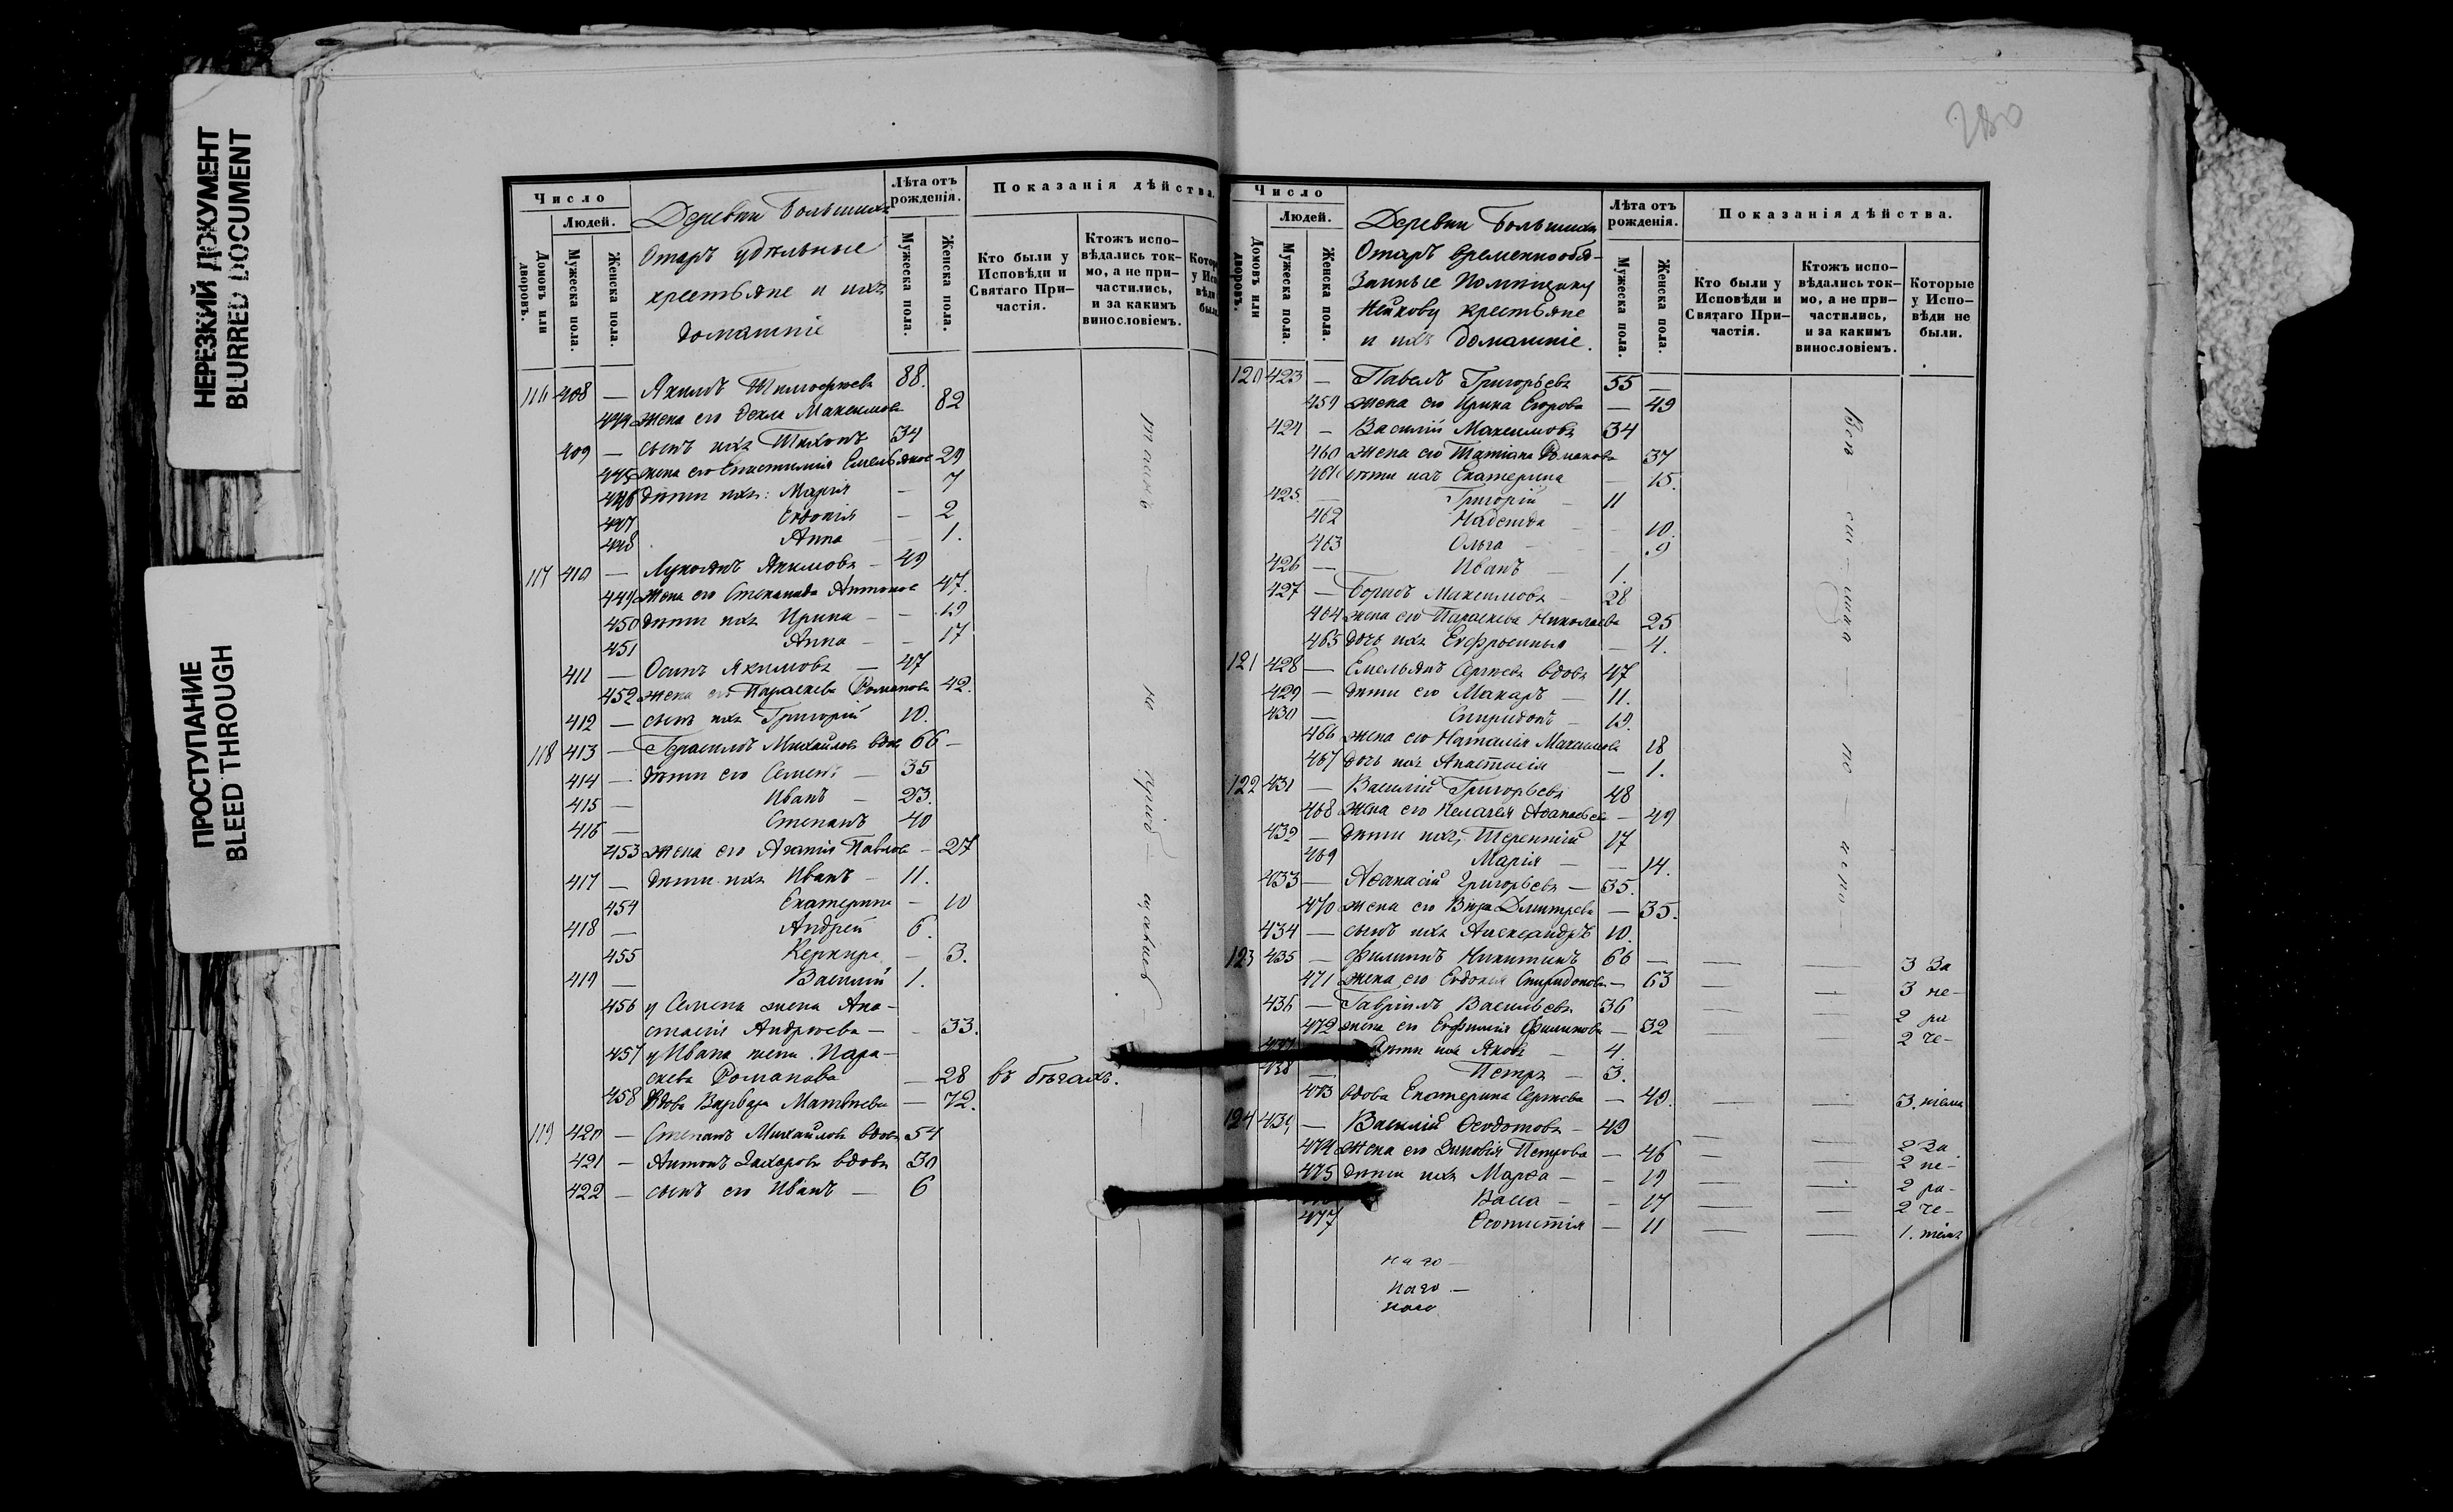 НЕРЕЗКИЙ ДОКУМЕНТ
BLURRED DOCUMENT
ПРОСТУПАНИЕ
BLEED THROUGH
280
Число
Людей.
Домовъ или дворовъ.
Мужеска пола.
Женска пола.
Деревни Большихъ
Отаръ удѣльные
крестьяне и ихъ
домашніе
Лѣта отъ рожденія.
Мужеска пола.
Женска пола.
Показанія дѣйства.
Кто были у Исповѣди и Святаго При-частія.
Ктожъ испо-вѣдались ток-мо, а не при-частились, и за какимъ винословіемъ.
116 408 — Акимъ Тимофеевъ 88.
444 жена его Фекла Максимова 82
409 — сынъ ихъ Тихонъ 34
445 жена его Епистимія Емельянов 29
446 дѣти ихъ: Марія — 7
447 Евдокія — 2
448 Анна — 1.
117 410 — Лукоянъ Акимовъ — 49
449 жена его Степанида Антонов 47.
450 дѣти ихъ Ирина — 19
451 Анна — 17
411 — Осипъ Акимовъ — 47
452 жена его Параскева Романова 42.
412 — сынъ ихъ Григорій 10.
118 413 — Герасимъ Михайловъ вдов 66 —
414 — дѣти его Семенъ — 35
415 — Иванъ — 23.
416 — Степанъ 40
453 жена его Агапія Павлов — 27
417 — дѣти ихъ Иванъ — 11.
454 Екатерина — 10
418 — Андрей 6.
455 Керкира — 3.
419 — Василій 1.
456 у Семена жена Ана-
стасія Андреева — 33.
457 у Ивана жена Пара-
скева Романова — 28 въ бѣгахъ.
458 вдова Варвара Матвѣева — 72.
119 420 — Степанъ Михайловъ вдовъ 54
421 — Антонъ Захаровъ вдовъ 30
422 — сынъ его Иванъ — 6
Число
Людей.
Домовъ или дворовъ.
Мужеска пола.
Женска пола.
Деревни Большихъ
Отаръ временнообя-
занные помѣщику
Нейкову крестьяне
и ихъ домашніе.
Лѣта отъ рожденія.
Мужеска пола.
Женска пола.
Показанія дѣйства.
Кто были у Исповѣди и Святаго При-частія.
Ктожъ испо-вѣдались ток-мо, а не при-частились, и за какимъ винословіемъ.
Которые у Испо-вѣди не были.
120 423 — Павелъ Григорьевъ 55 —
459 жена его Ирина Егорова — 49
424 — Василій Максимовъ 34
460 жена его Татіана Романова 37
461 дѣти ихъ Екатерина — 15.
425 — Григорій — 11
462 Надежда — 10.
463 Ольга — 9
426 — Иванъ — 1.
427 — Борисъ Максимовъ — 28
464 жена его Параскева Николаева 25
465 дочь ихъ Евфросинья — 4.
121 428 — Емельянъ Сергеевъ вдовъ 47
429 — дѣти его Макаръ — 11.
430 — Спиридонъ — 19.
466 жена его Наталія Максимова 18
467 дочь ихъ Анастасія — 1.
122 431 — Василій Григорьевъ 48
468 жена его Пелагея Афанасьева — 49
432 — дѣти ихъ Терентій 17
469 Марія — 14.
433 — Афанасій Григорьевъ — 35.
470 жена его Вѣра Дмитрева — 35.
434 — сынъ ихъ Александръ 10.
123 435 — Филиппъ Никитинъ 66 — — — 3 За
471 жена его Евдокія Спиридонова — 63 — — 3 не-
436 — Гавріилъ Васильевъ 36 — — 2 ра
472 жена его Евфимія Филипова — 32 — — 2 че-
437 дѣти ихъ Яковъ — 4.
438 — Петръ — 3.
473 вдова Екатерина Сергеева — 49. — — 3. ніемъ
124 439 — Василій Феодотовъ — 49 — — 2 За
474 жена его Зиновія Петрова — 46 — — 2 не-
475 дѣти ихъ Марфа — 19 — — 2 ра-
Васса — 17 — — 2 че-
477 Феоктистія — 11 — — 1. ніемъ
наго —
наго —
наго